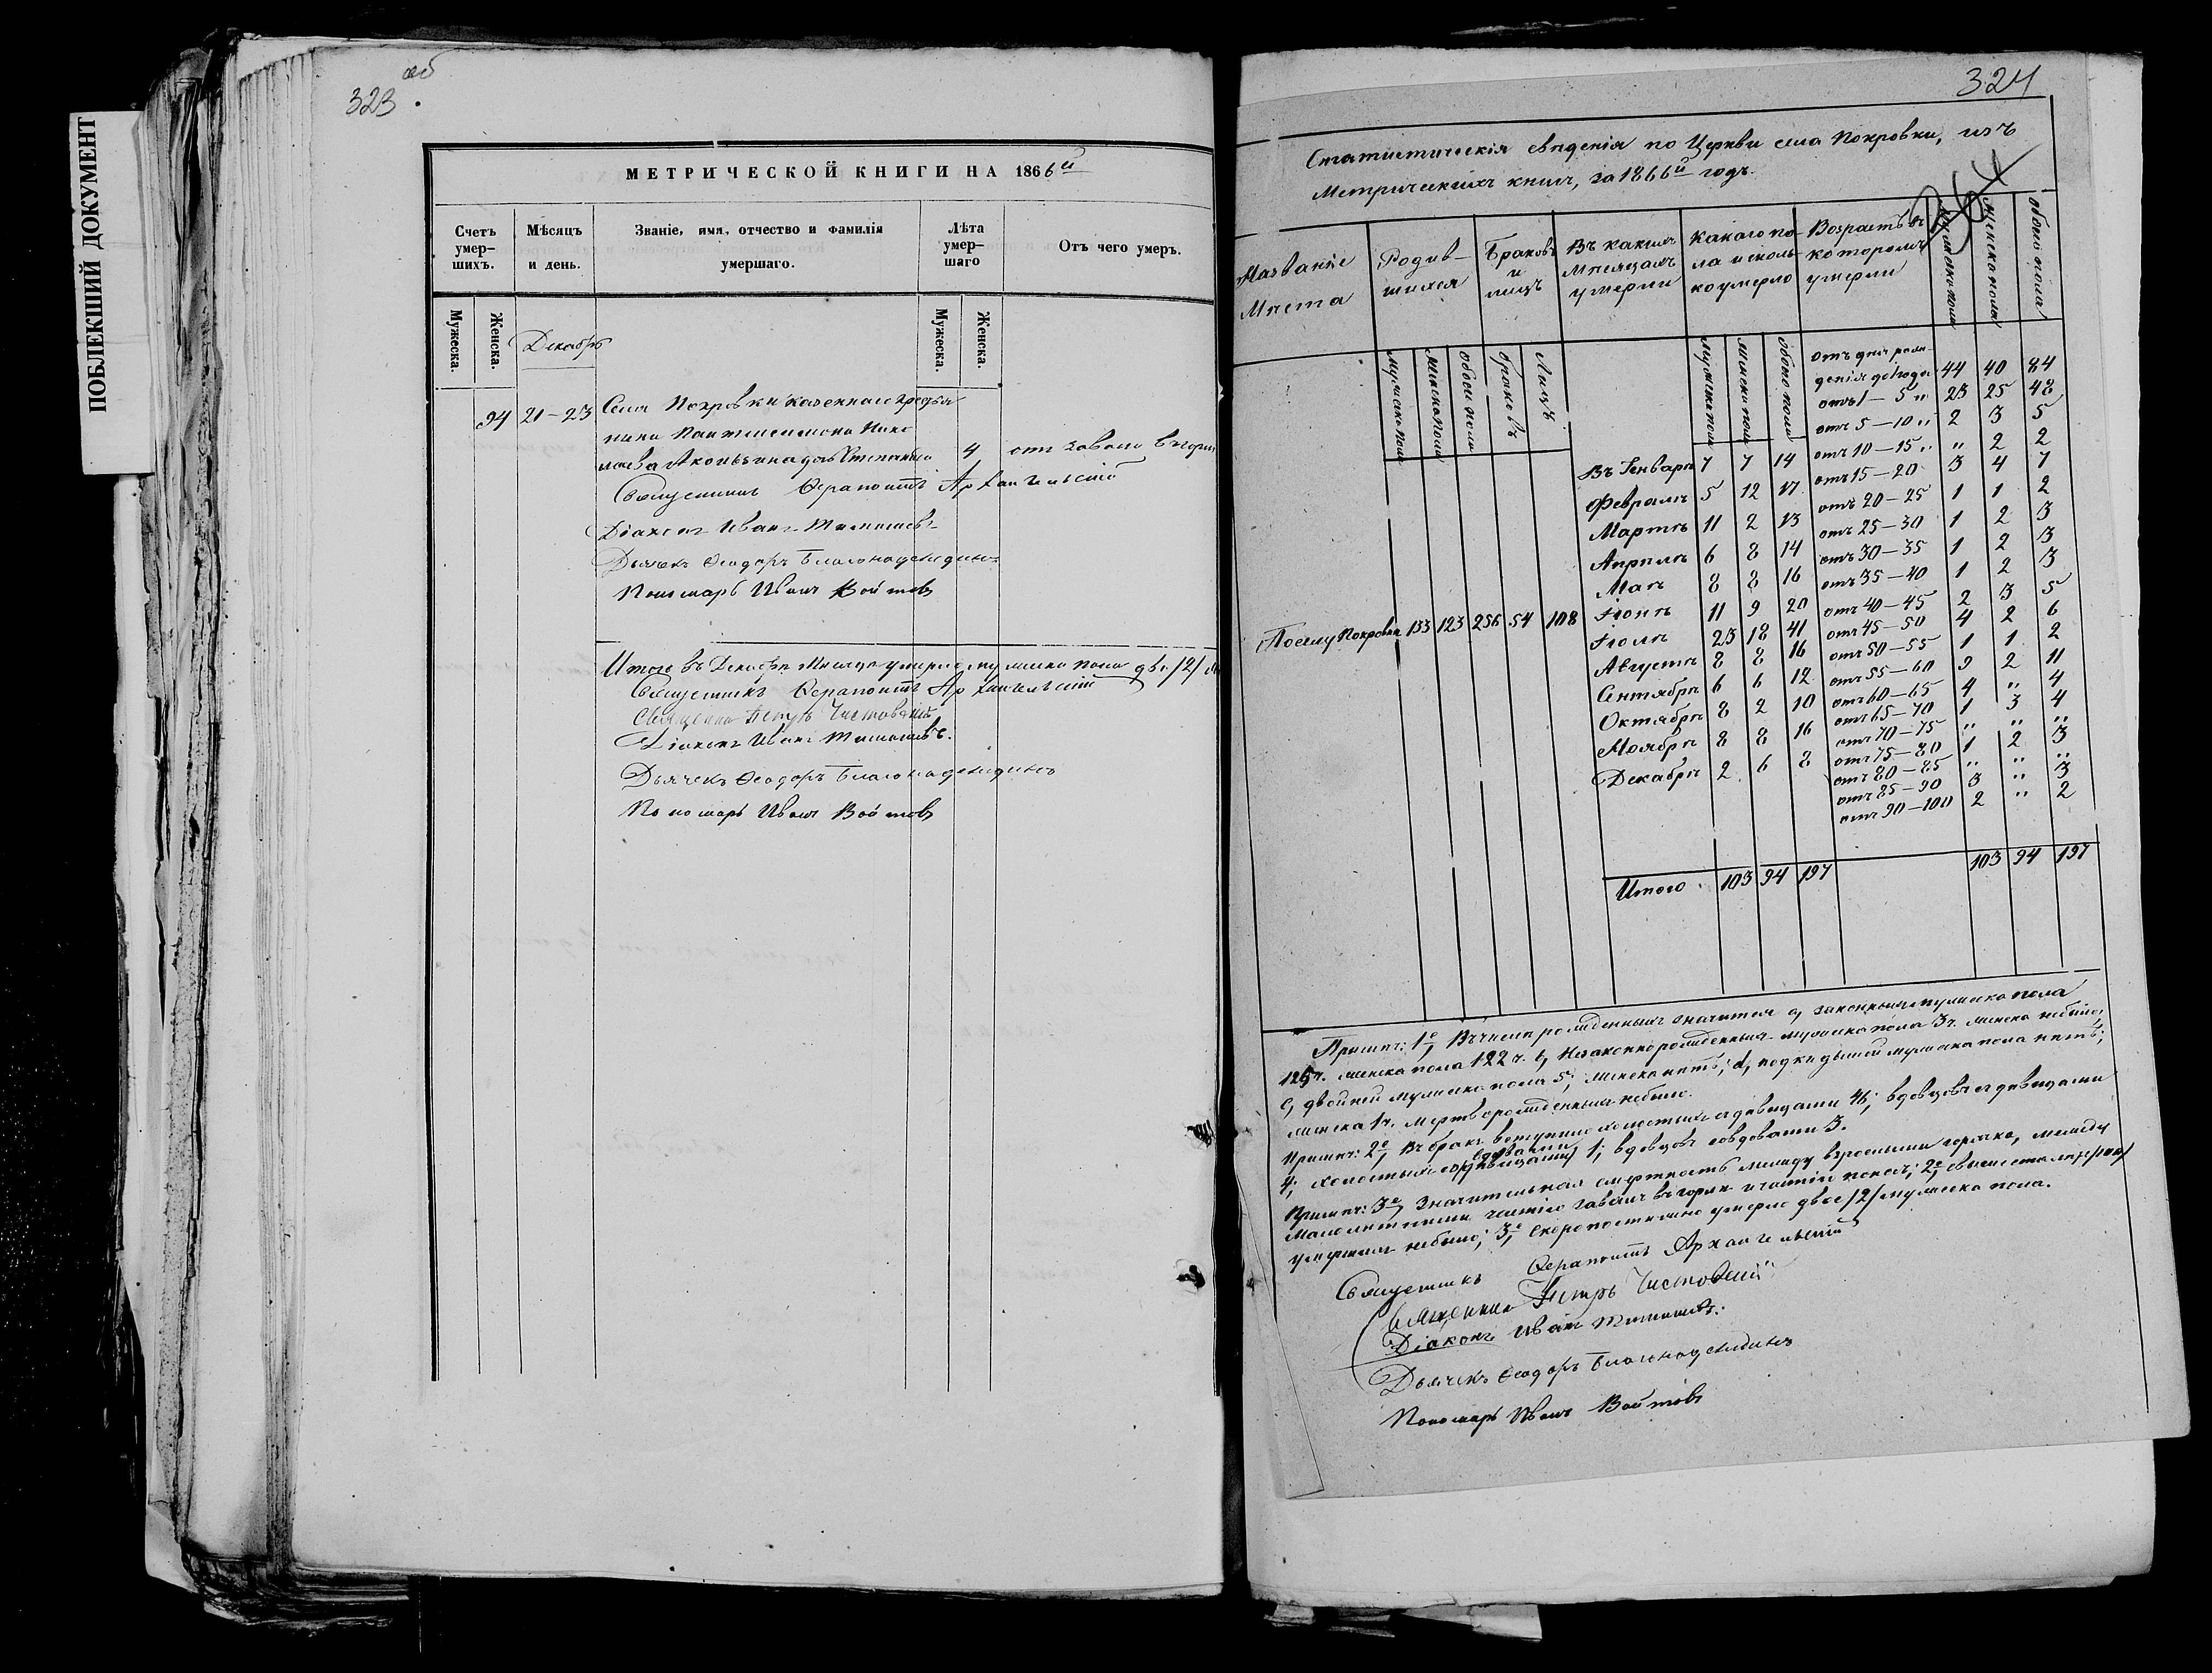 ПОБЛЕКШИЙ ДОКУМЕНТ
323 об
МЕТРИЧЕСКОЙ КНИГИ НА 1866й
Счетъ умерших. Мѣсяцъ и день. Званіе, имя, отчество и фамилія умершаго. Лѣта умершаго Отъ чего умеръ.
Мужеска. Женска. Декабрь Мужеска. Женска.
94 21-23 Села Покровки казеннаго крестья
нина Пантелеимона Нико
лаева дочь Степанида 4 отъ завалу въ горлѣ
Священникъ Ѳерапонтъ Архангельскій
Діаконъ Иванъ Тимошевъ
Дьячекъ Ѳеодоръ Благонадеждинъ
Пономарь Иванъ Войтовъ
Итого въ Декабрѣ Мѣсяцѣ умерло мужеска пола два /2/
Священникъ Ѳерапонтъ Архангельскій
Священникъ Петръ Чистовскій
Діаконъ Иванъ Тимошевъ.
Дьячекъ Ѳеодоръ Благонадеждинъ
Пономарь Иванъ Войтовъ
324
Статистическія свѣденія по Церкви села Покровки, изъ
Метрическихъ книгъ, за 1866й годъ.
Названіе Мѣста Родившихся Браковъ и лицъ Въ какихъ Мѣсяцахъ умерли Какаго пола и сколько умерло Возрастъ въ которомъ умерли Мужеска пола Женска пола обоего пола
Мужеска пола Женска пола обоего пола браковъ Лицъ мужеска пола женска пола обоего пола
отъ дня рож-
денія до года 44 40 84
отъ 1-5 " 23 25 48
отъ 5-10 " 2 3 5
отъ 10-15 " " 2 2
отъ 15-20 3 4 7
отъ 20-25 1 1 2
отъ 25-30 1 2 3
отъ 30-35 1 2 3
отъ 35-40 1 2 3
отъ 40-45 2 3 5
отъ 45-50 4 2 6
отъ 50-55 1 1 2
отъ 55-60 9 2 11
отъ 60-65 4 " 4
отъ 65-70 1 3 4
отъ 70-75 " " "
отъ 75-80 1 2 3
отъ 80-85 " " "
отъ 85-90 3 " 3
отъ 90-100 2 " 2
Въ Генварѣ 7 7 14
Февралѣ 5 12 17
Мартѣ 11 2 13
Апрѣлѣ 6 8 14
Маѣ 8 8 16
Іюнѣ 11 9 20
Іюлѣ 23 18 41
Августѣ 8 8 16
Сентябрѣ 6 6 12
Октябрѣ 8 2 10
Ноябрѣ 8 8 16
Декабрѣ 2 6 8
По селу Покровки 133 123 256 54 108
Итого 103 94 197 103 94 197
Примѣч: 1е, Въ числѣ рожденныхъ значится а, законныхъ мужеска пола
ч. женска пола 122 ч. в, Незаконнорожденныхъ мужеска пола 3 ч. женска небыло,
с, двойней мужеска пола 5; женска нѣтъ; d, подкидышей мужеска пола нѣтъ;
женска 1 ч. мертворожденныхъ небыло.
Примѣч: 2е, Въ бракъ вступило холостыхъ съ дѣвицами 46; вдовцовъ съ дѣвицами
4; холостыхъ со вдовами 1; вдовцовъ со вдовами 3.
Примѣч: 3е, Значительная смертность между взрослыми горячка, между
малолѣтними частію завалъ въ горлѣ и частію поносъ; 2е, свыше ста лѣтъ /100/
умершихъ небыло; 3е, Скоропостижно умерло двое /2/ мужеска пола.
Священникъ Ѳерапонтъ Архангельскій
Священникъ Петръ Чистовскій
Діаконъ Иванъ Тимошевъ.
Дьячекъ Ѳеодоръ Благонадеждинъ
Пономарь Иванъ Войтовъ